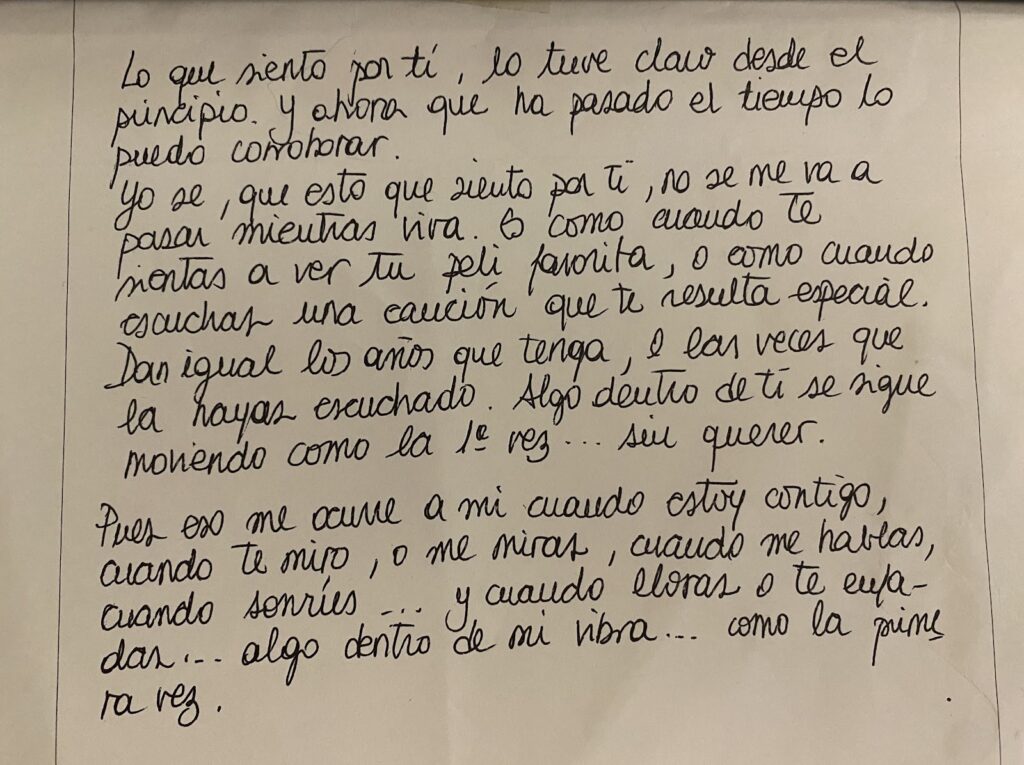 Lo que siento por tí, lo tuve claro desde el
principio. y ahora que ha pasado el tiempo lo
puedo corroborar.
Yo se, que esto que siento por tí, no se me va a
pasar mientras viva. Es como cuando te
sientas a ver tu peli favorita, o como cuando
escuchas una canción que te resulta especial.
Dan igual los años que tenga, o las veces que
la hayas escuchado. Algo dentro de tí se sigue
moviendo como la 1ª vez... sin querer.
Pues eso me ocurre a mi cuando estoy contigo,
cuando te miro, o me miras, cuando me hablas,
cuando sonríes ... y cuando lloras o te enfa-
das... algo dentro de mi vibra... como la prime
ra vez.